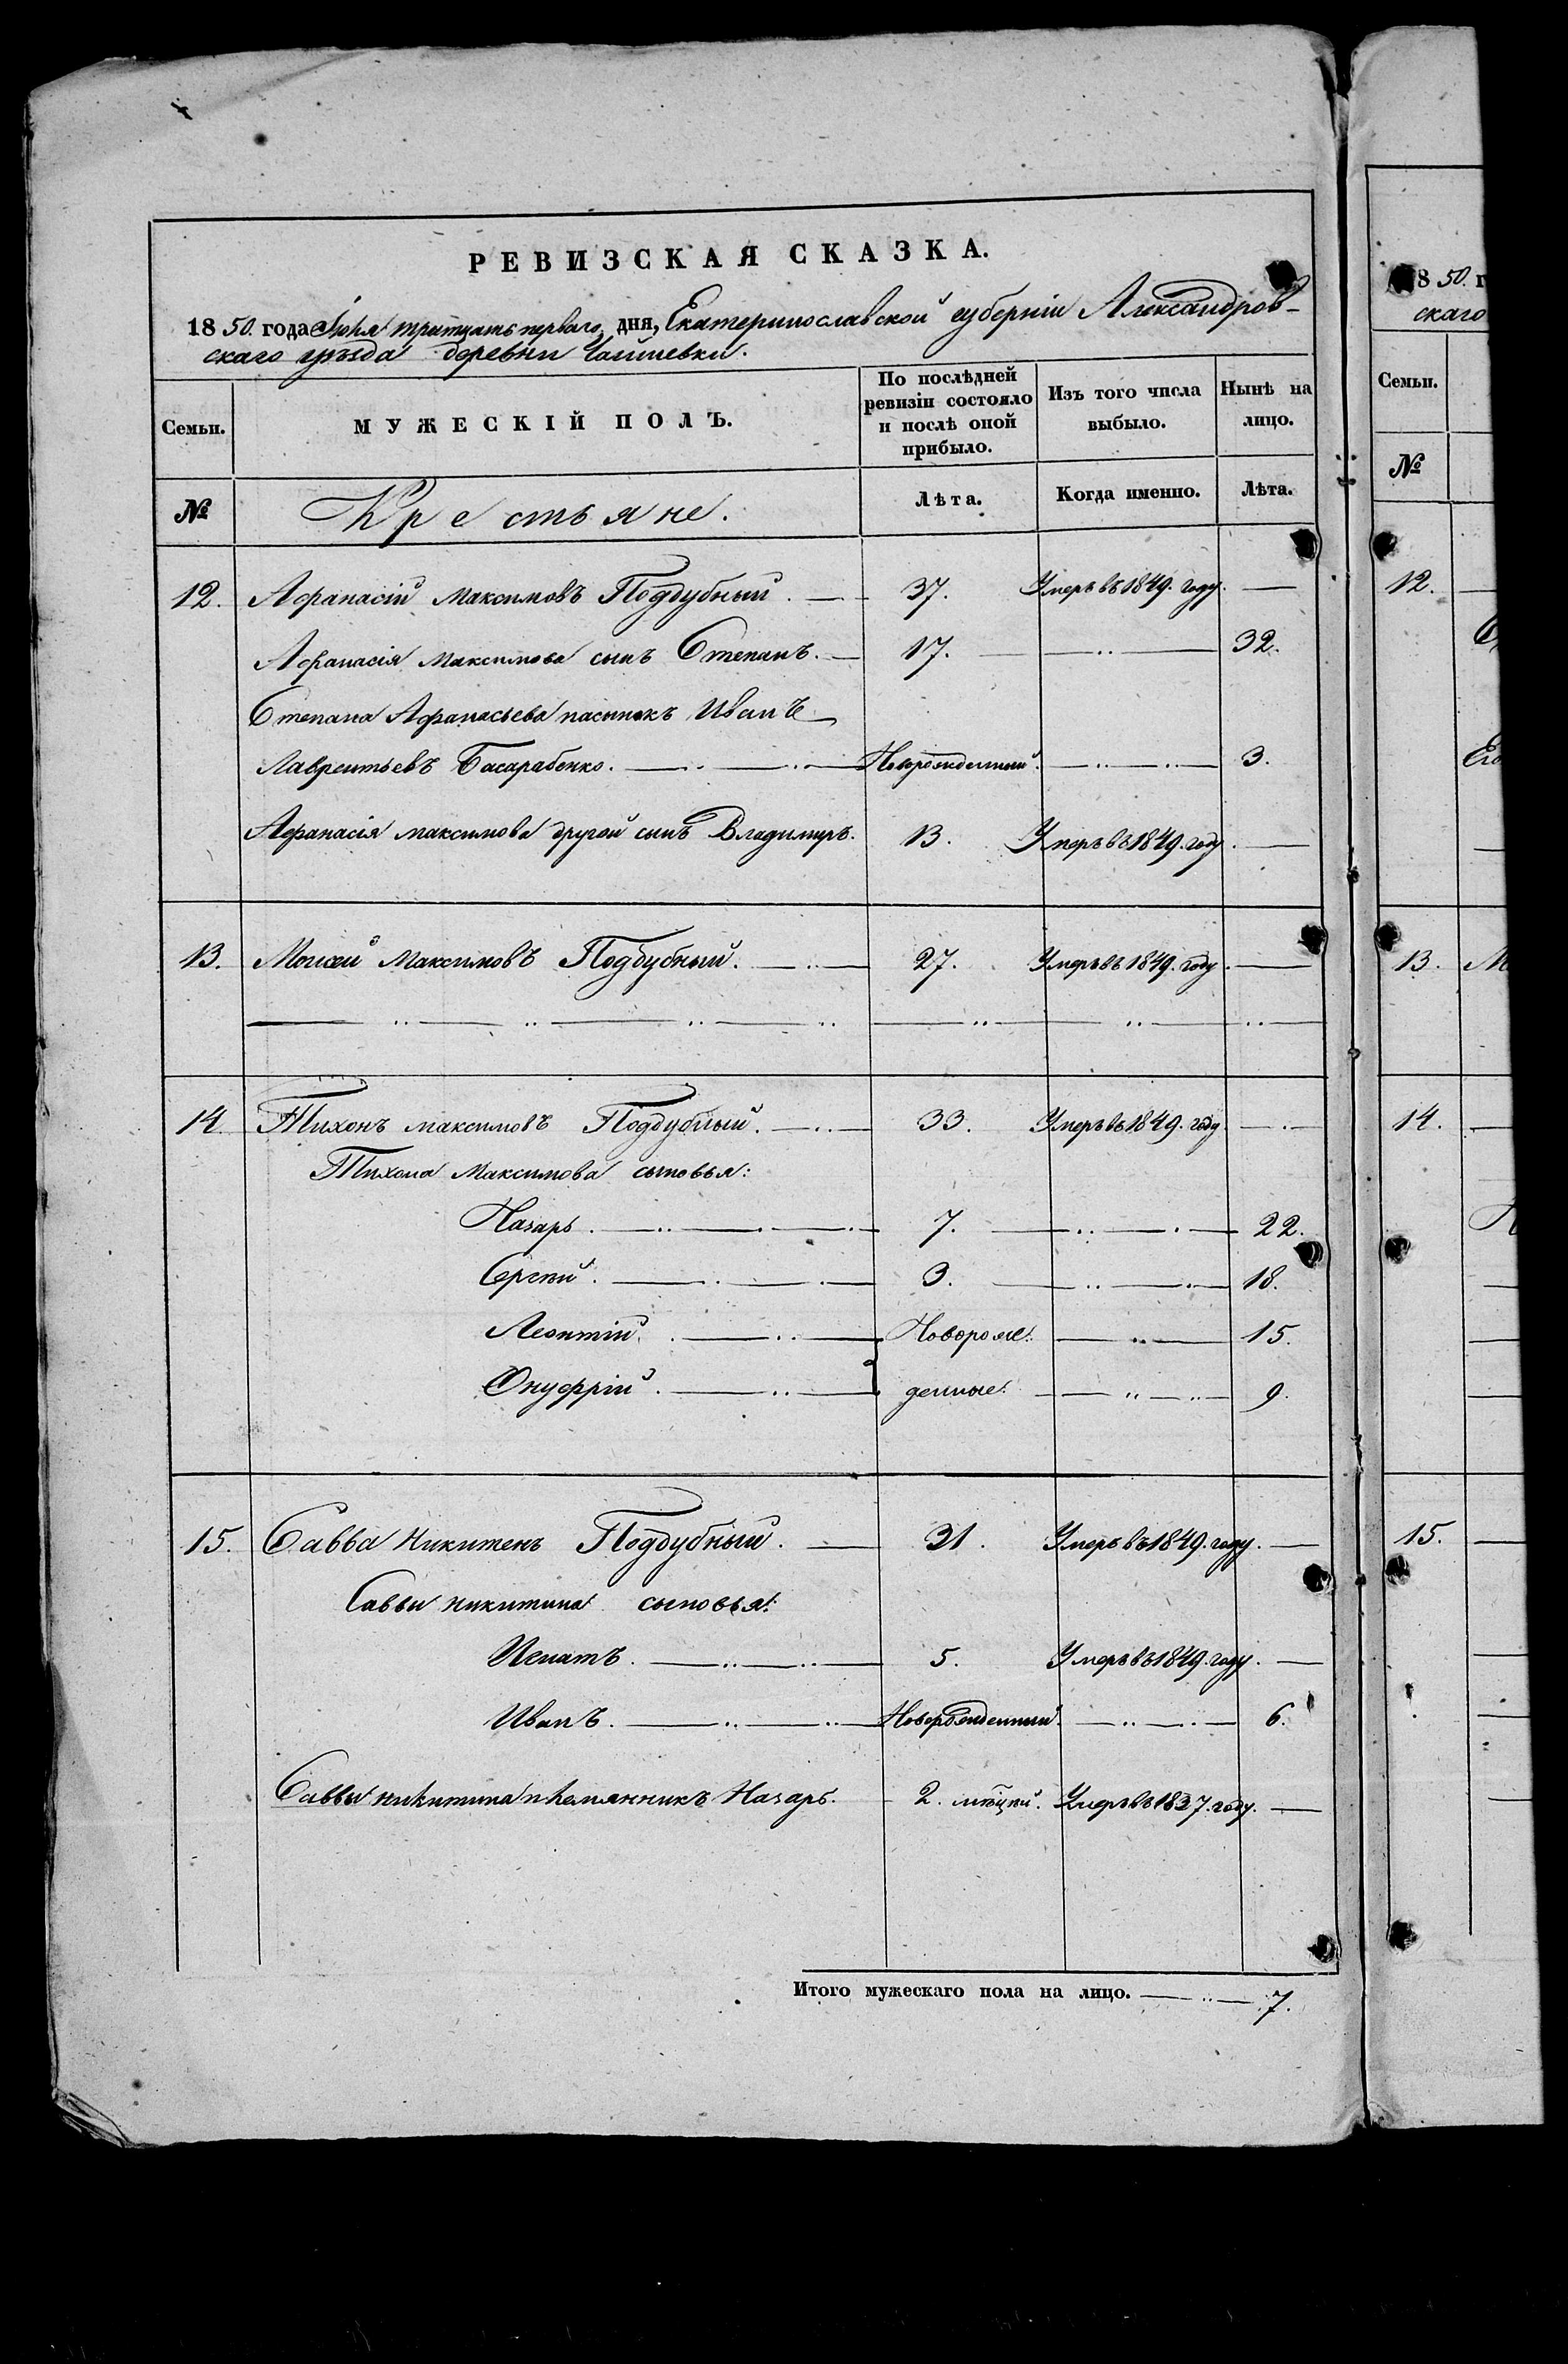 РЕВИЗСКАЯ СКАЗКА.
1850. года Июля тритцать перваго дня, Екатеринославской губерніи Александров-
скаго уѣзда деревни
Семьи.
МУЖЕСКІЙ ПОЛЪ.
По послѣдней
ревизіи состояло
и послѣ оной
прибыло.
Изъ того числа
выбыло.
Нынѣ на
лицо.
№
Крестьяне.
Лѣта.
Когда именно.
Лѣта.
12. Афанасій Максимовъ Поддубный. — 37. Умеръ въ 1849. году. —
Афанасія Максимова сынъ Степанъ. — 17. — 32.
Степана Афанасьева пасынокъ Иванъ
Лаврентьевъ Басарабенко. — Новорожденный. — 3.
Афанасія Максимова другой сынъ Владимиръ. 13. Умеръ въ 1849. году. —
13. Моисей Максимовъ Поддубный. — 27. Умеръ въ 1849. году. —
14. Тихонъ Максимовъ Поддубный. — 33. Умеръ въ 1849. году. —
Тихона Максимова сыновья:
Назаръ. — 7. — 22.
Сергѣй. — 3. — 18.
Леонтій. — Новорож: — 15.
Онуфрій. — денные. — 9.
15. Савва Никитенъ Поддубный. — 31. Умеръ въ 1849. году. —
Саввы Никитина сыновья:
Игнатъ. — 5. Умеръ въ 1849. году. —
Иванъ. — Новорожденный. — 6.
Саввы Никитина племянникъ Назаръ. 2. мѣсцей. Умеръ въ 1837. году. —
Итого мужескаго пола на лицо. — 7.
1850. г
скаго
Семьи.
№
12.
Ег
13. М
14.
15.